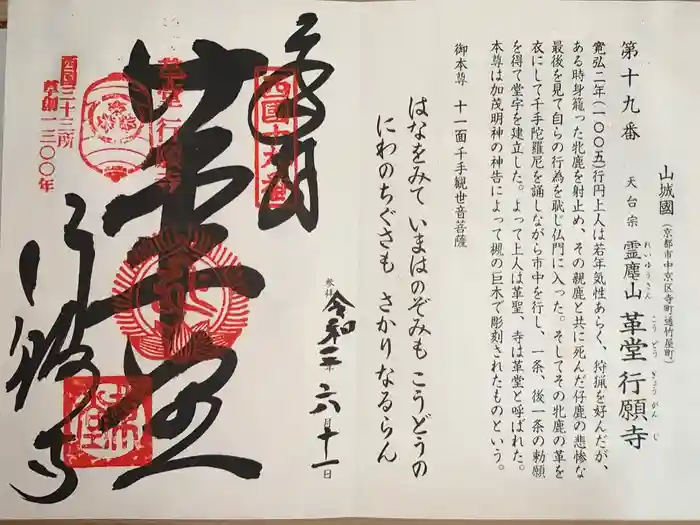 第十九番
山城國
（京都市中京区寺町通竹屋町）
天台宗 霊麀山 革堂行願寺
れいゆうさん こうどうぎょうがんじ
寛弘二年（一〇〇五）行円上人は若年気性あらく、狩猟を好んだが、
ある時身籠った牝鹿を射止め、その親鹿と共に死んだ仔鹿の悲惨な
最後を見て自らの行為を恥じ仏門に入った。そしてその牝鹿の革を
衣にして千手陀羅尼を誦しながら市中を行し、一条、後一条の勅願
を得て堂宇を建立した。よって上人は革聖、寺は革堂と呼ばれた。
本尊は加茂明神の神告によって槻の巨木で彫刻されたものという。
御本尊 十一面千手観世音菩薩
はなをみて いまはのぞみも こうどうの
にわのちぐさも さかりなるらん
参拝 令和三年六月十一日
奉拝
西国十九番
革堂
行願寺
西国三十三所
草創一三〇〇年